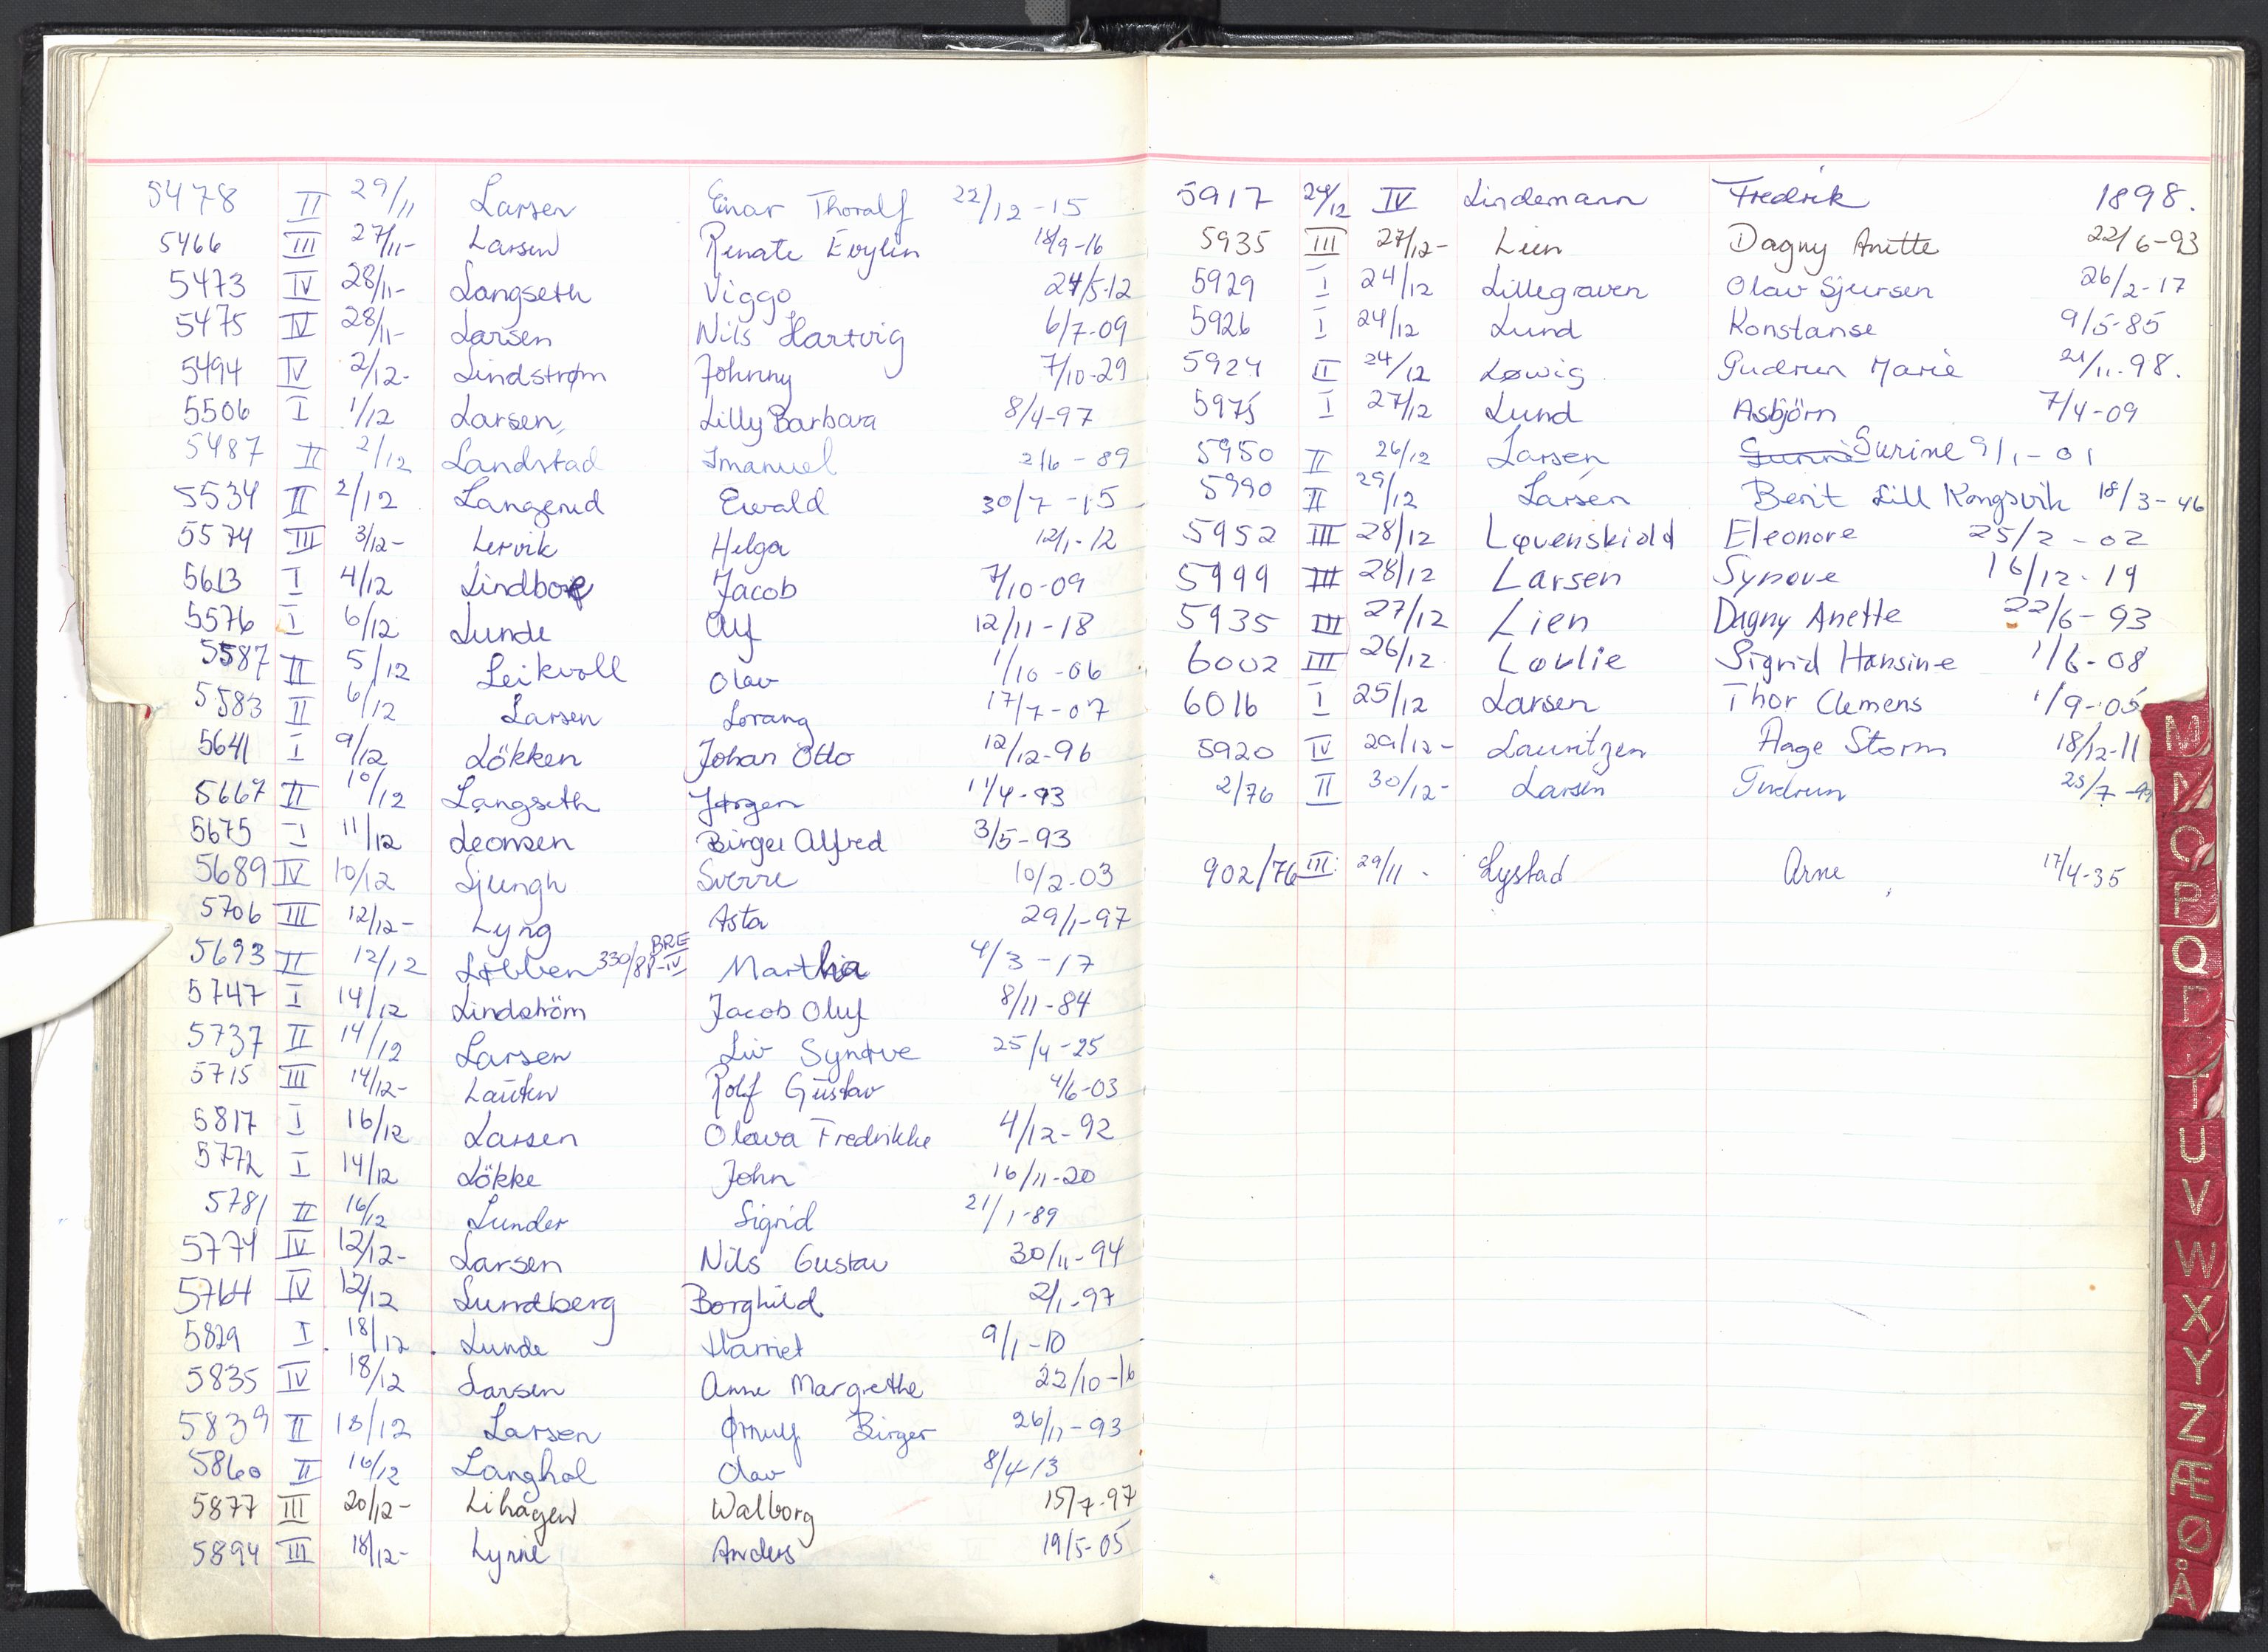 5478 II 29/11 Larsen Einar Thoralf 22/12-15
5466 III 27/11- Larsen Renate Evylin 18/9-16
5473 IV 28/11- Langseth Viggo 24/5-12
5475 IV 28/11- Larsen Nils Hartvig 6/7-09
5494 IV 2/12- Lindstrøm Johnny 7/10-29
5506 I 1/12 Larsen, Lilly Barbara 8/4-97
5487 II 2/12 Landstad Imanuel 2/6-89
5534 II 2/12 Langerud Ewald 30/7-15
5574 III 3/12- Lervik Helga 12/1-12
5613 I 4/12 Lindboe Jacob 7/10-09
5576 I 6/12 Lunde Alf 12/11-18
5587 II 5/12 Leikvoll Olav 1/10-06
5583 II 6/12 Larsen Lorang 17/7-07
5641 I 9/12 Lökken Johan Otto 12/12-96
5667 II 10/12 Langseth Jørgen 11/4-93
5675 I 11/12 Leonsen Birger Alfred 3/5-93
5689 IV 10/12 Ljungh Sverre 10/2-03
5706 III 12/12- Lyng Asta 29/1-97
5693 II 12/12 Løbben 330/88-IV BRE Martha 4/3-17
5747 I 14/12 Lindström Jacob Oluf 8/11-84
5737 II 14/12 Larsen Liv Synøve 25/4-25
5715 III 14/12- Lauten Rolf Gustav 4/6-03
5817 I 16/12 Larsen Olava Fredrikke 4/12-92
5772 I 14/12 Lökke John 16/11-20
5781 II 16/12 Lunder Sigrid 21/1-89
5774 IV 12/12- Larsen Nils Gustav 30/11-94
5764 IV 12/12 Lundberg Borghild 2/1-97
5829 I 18/12 Lunde Harriet 9/1-10
5835 IV 18/12 Larsen Anne Margrethe 22/10-16
5839 II 18/12 Larsen Ørnulf Birger 26/11-93
5860 II 16/12 Langhol Olav 8/4-13
5877 III 20/12- Lihagen Walborg 15/7-97
5894 III 18/12- Lynne Anders 19/5-05
5917 24/12 IV Lindemann Fredrik 1898.
5935 III 27/12- Lien Dagny Anette 22/6-93
5929 I 24/12 Lillegraven Olav Sjursen 26/2-17
5926 I 24/12 Lund Konstanse 9/5-85
5924 II 24/12 Løwig Gudrun Marie 21/11-98.
5975 I 27/12 Lund Asbjörn 7/4-09
5950 II 26/12 Larsen Surine 9/1-01
5990 II 29/12 Larsen Berit Lill Kongsvik 18/3-46
5952 III 28/12 Løvenskiold Eleonore 25/2-02
5999 III 28/12 Larsen Synøve 16/12-19
5935 III 27/12 Lien Dagny Anette 22/6-93
6002 III 26/12 Løvlie Sigrid Hansine 1/6-08
6016 I 25/12 Larsen Thor Clemens 1/9-05
5920 IV 29/12- Lauritzen Aage Storm 18/12-11
2/76 II 30/12- Larsen Gudrun 25/7-99
902/76 III 29/11- Lystad Arne 17/4-35
M
N
O
P
Q
R
T
U
V
W
X
Y
Z
Æ
Ø
Å